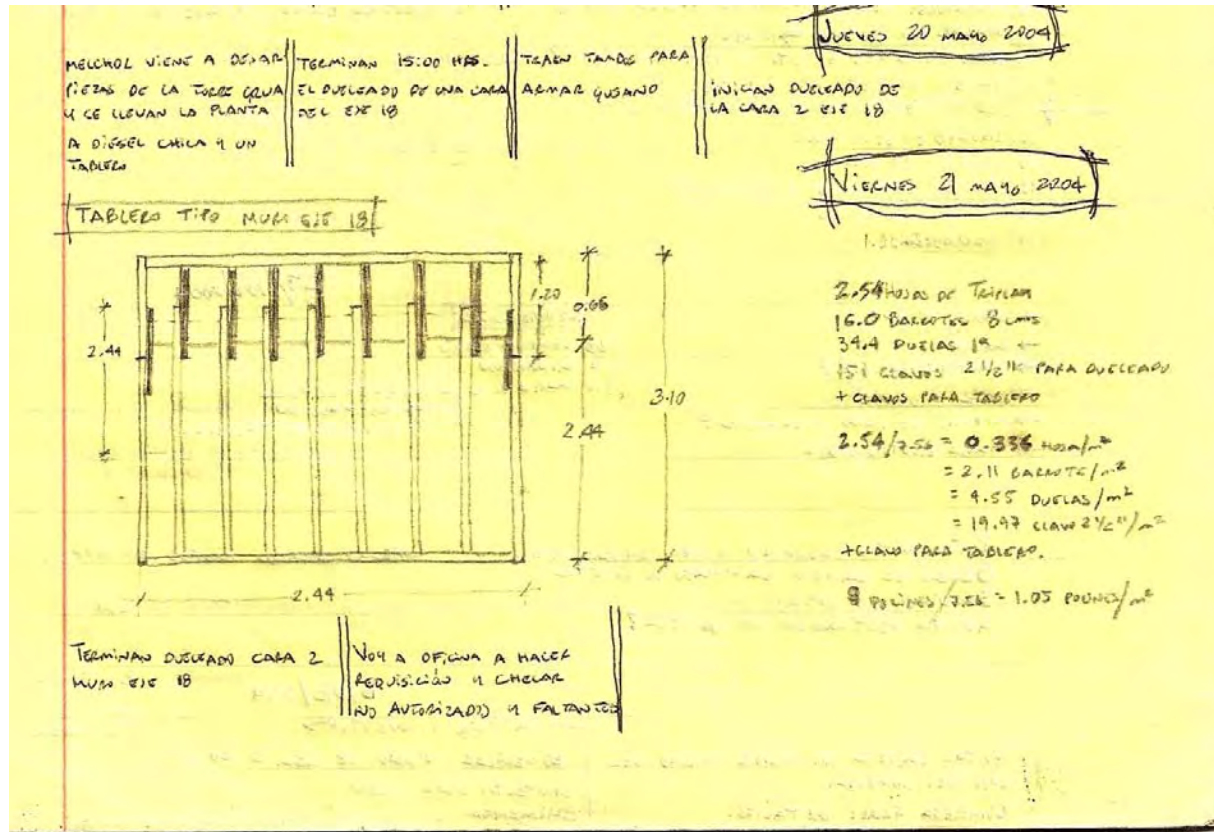 JUEVES 20 MAYO 2004
MELCHOR VIENE A DEJAR
PIEZAS DE LA TORRE GRUA
Y SE LLEVAN LA PLANTA
A DIESEL CHICA Y UN
TABLERO
TERMINAN 15:00 HRS.
EL DUELEADO DE UNA CARA
DEL EJE 18
TRAEN PARA
ARMAR GUSANO
INICIAN DUELEADO DE
LA CARA 2 EJE 18
VIERNES 21 MAYO 2004
TABLERO TIPO MURO EJE 18
2.44
1.20
0.66
2.44
3.10
2.44
2.54 HOJAS DE TRIPLAY
16.0 BARROTES
34.4 DUELAS
151 CLAVOS 2 1/2" PARA DUELEADO
+ CLAVOS PARA TABLERO
2.54/7.56 = 0.336 HOJA/m²
= 2.11 BARROTE/m²
= 4.55 DUELAS/m²
= 19.97 CLAVO 2 1/2"/m²
+ CLAVO PARA TABLERO.
8 POLINES/7.56 = 1.05 POLINES/m²
TERMINAN DUELEADO CARA 2
MURO EJE 18
VOY A OFICINA A HACER
REQUISICIÓN Y CHECAR
(NO AUTORIZADO) Y FALTANTES